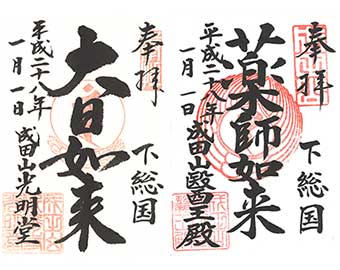 奉拝
下総国
大日如来
平成二十八年
一月一日
成田山光明堂
奉拝
下総国
薬師如来
平成二八年
一月一日
成田山醫王殿